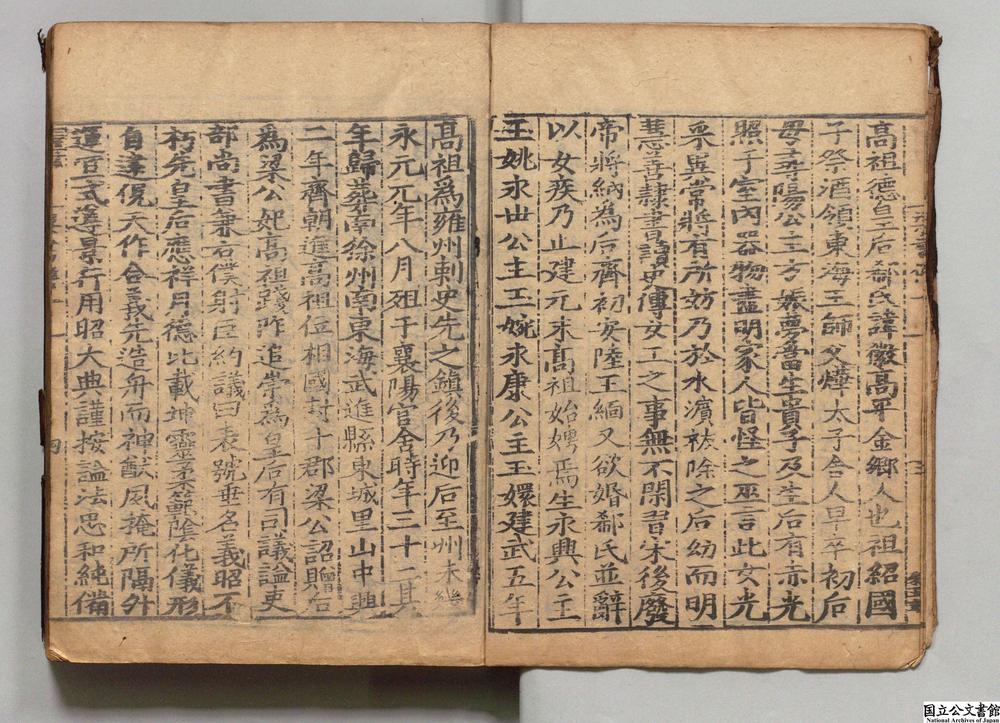 高祖德皇后郗氏諱徽高平金鄉人也祖紹國
子祭酒領東海王師父燁太子舍人早卒初后
母尋陽公主方娠夢當生貴子及生后有赤光
照于室內器物盡明家人皆怪之巫言此女光
采異常將有所妨乃於水濱祓除之后幼而明
慧善隷書讀史傳女工之事無不閑習宋後廢
帝將納為后齊初安陸王緬又欲婚郗氏並辭
以女疾乃止建元末高祖始娉焉生永興公主
玉姚永世公主玉婉永康公主玉嬛建武五年
高祖為雍州刺史先之鎮後乃迎后至州未幾
永元元年八月殂于襄陽官舍時年三十二其
年歸葬南徐州南東海武進縣東城里山中興
二年齊朝進高祖位相國封十郡梁公詔贈后
為梁公妃高祖踐阼追崇為皇后有司議謚吏
部尚書兼右僕射臣約議曰表號垂名義昭不
朽先皇后應祥月德比載坤靈柔範陰化儀形
自遠俔天作合義先造舟而神猷夙掩所隔外
運宜式遵景行用昭大典謹按謚法思和純備
国立公文書館
National Archives of Japan